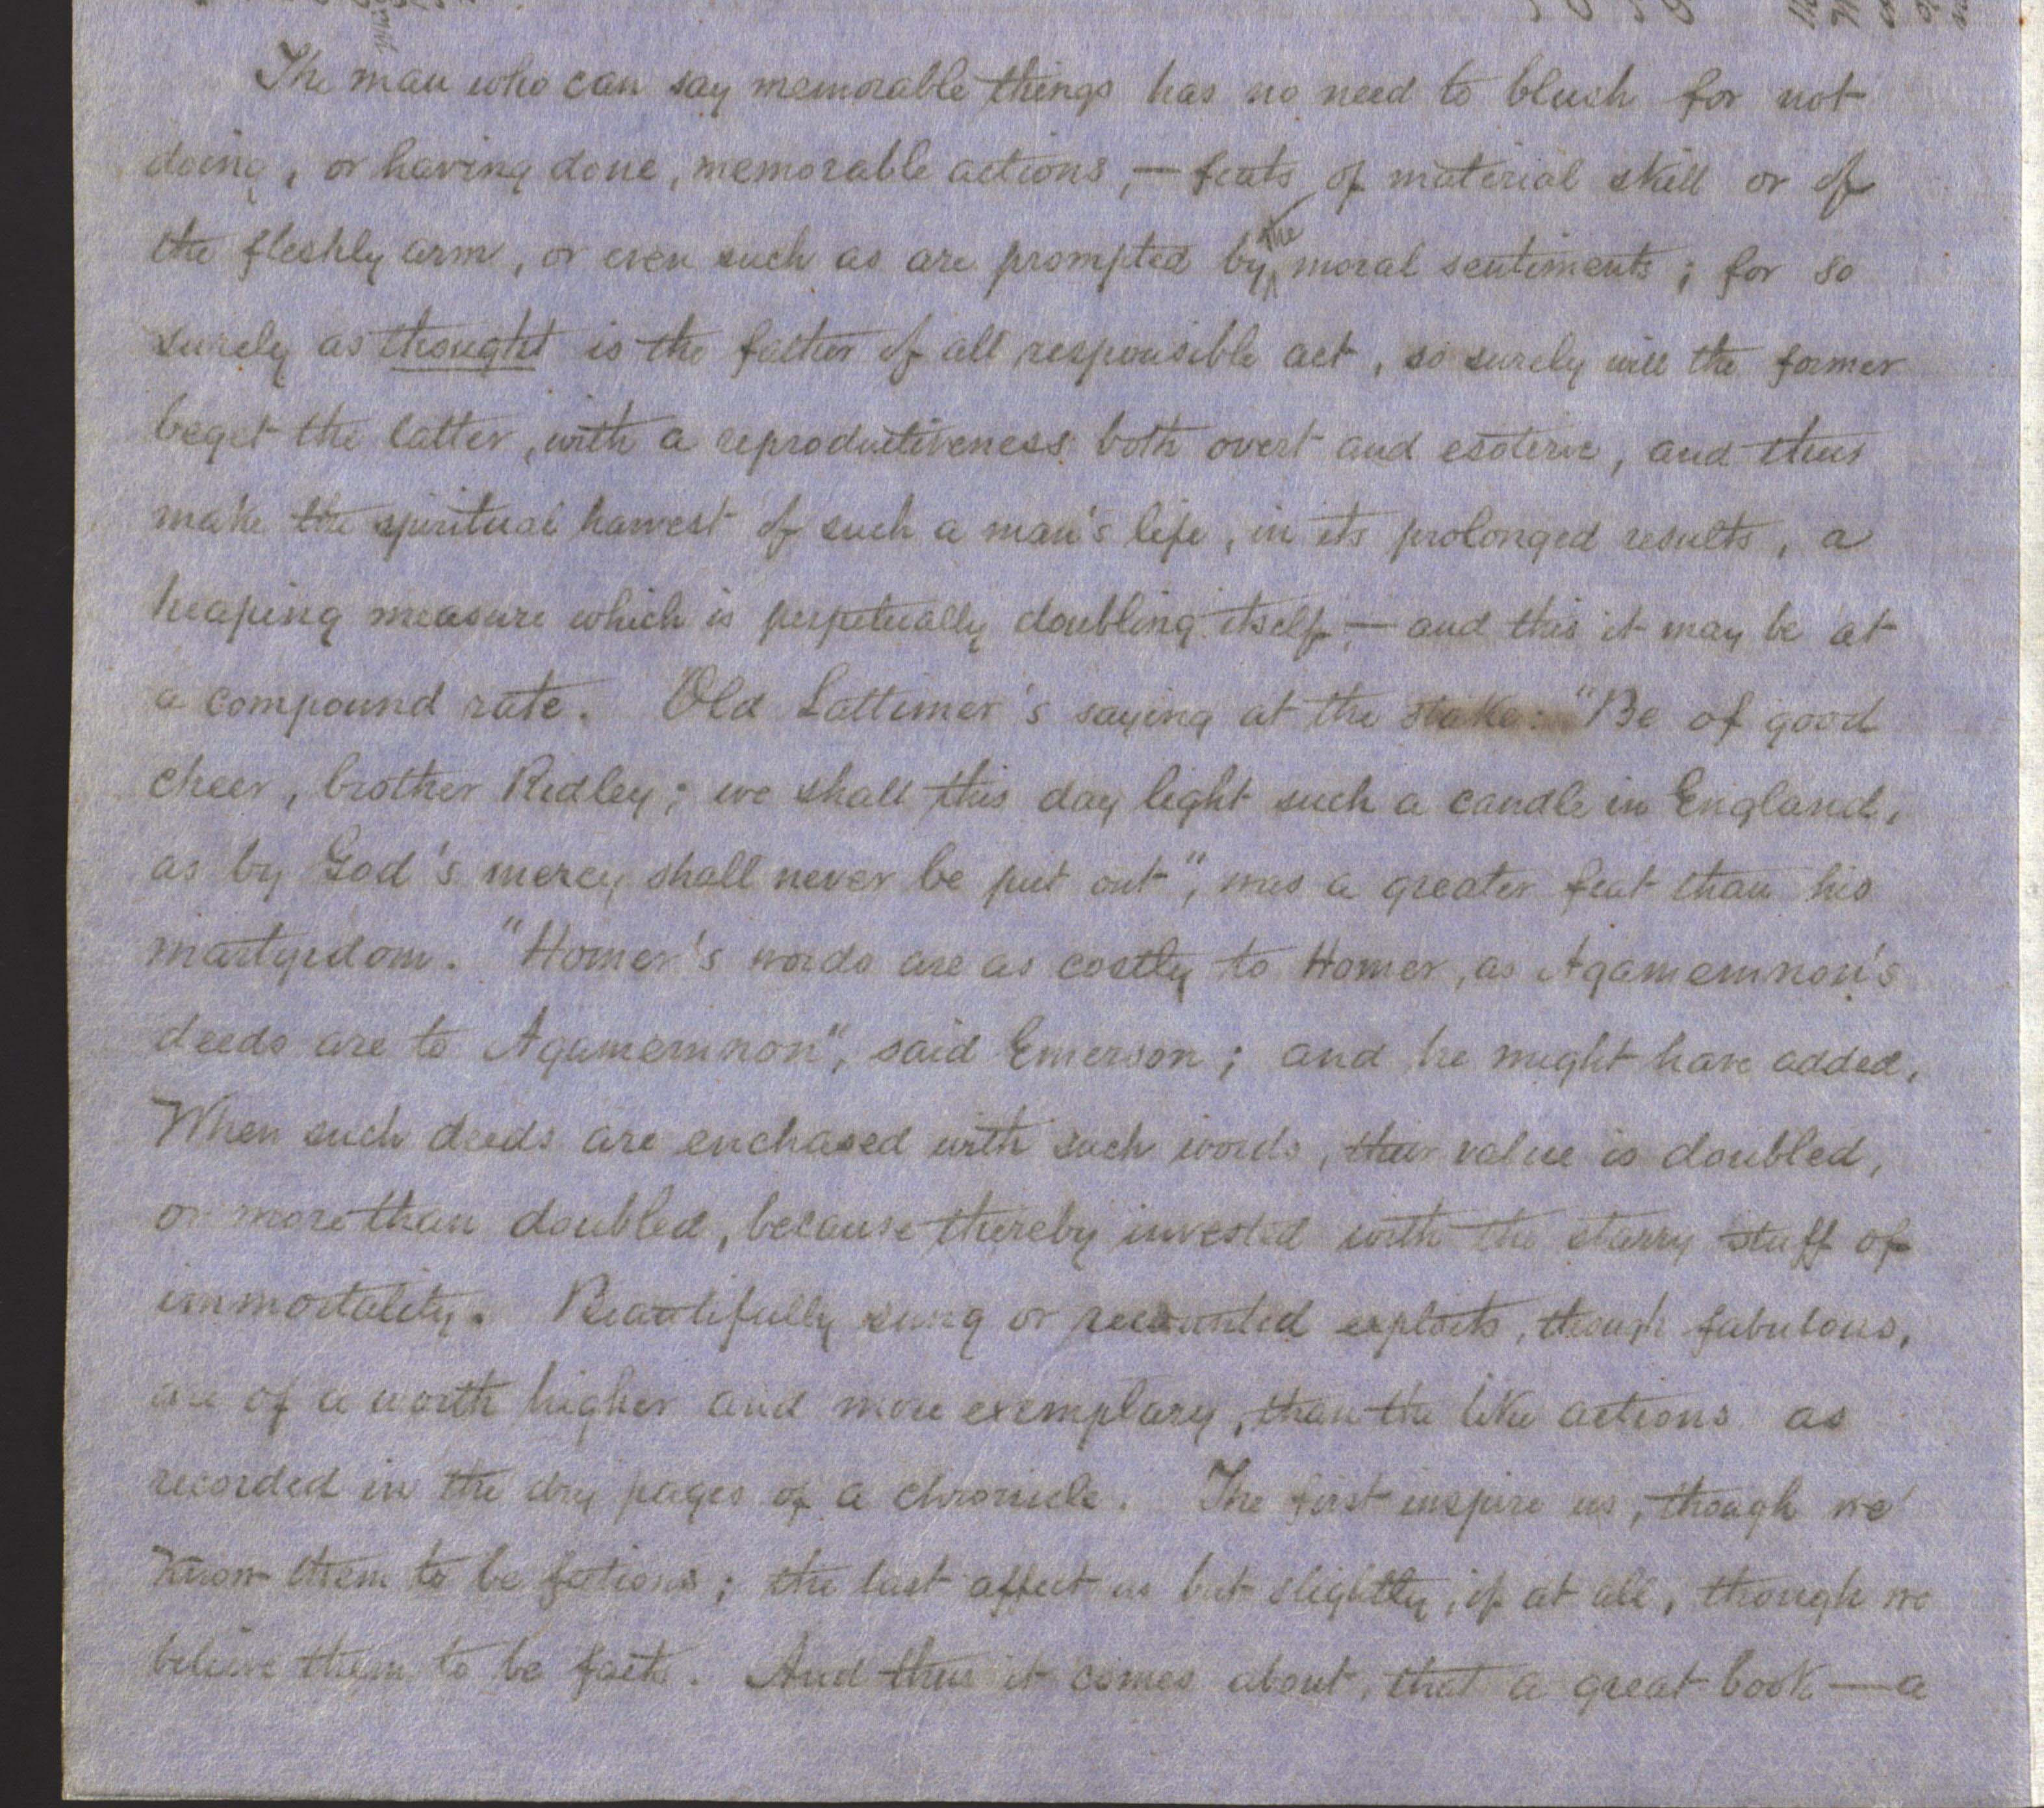 The man who can say memorable things has no need to blush for not
doing, or having done, memorable actions, — feats of material skill or of
the fleshly arm, or even such as are prompted by the moral sentiments; for so
surely as thought is the father of all responsible act, so surely will the former
beget the latter, with a reproductiveness both overt and esoteric, and thus
make the spiritual harvest of such a man's life, in its prolonged results, a
heaping measure which is perpetually doubling itself, — and this it may be at
a compound rate. Old Lattimer's saying at the stake: "Be of good
cheer, brother Ridley; we shall this day light such a candle in England,
as by God's mercy shall never be put out", was a greater feat than his
martyrdom. "Homer's words are as costly to Homer, as Agamemnon's
deeds are to Agamemnon", said Emerson; and he might have added,
When such deeds are enchased with such words, their value is doubled,
or more than doubled, because thereby invested with the starry stuff of
immortality. Beautifully sung or recounted exploits, though fabulous,
are of a worth higher and more exemplary, than the like actions as
recorded in the dry pages of a chronicle. The first inspire us, though we
know them to be fictions; the last affect us but slightly, if at all, though we
believe them to be facts. And thus it comes about, that a great book — a